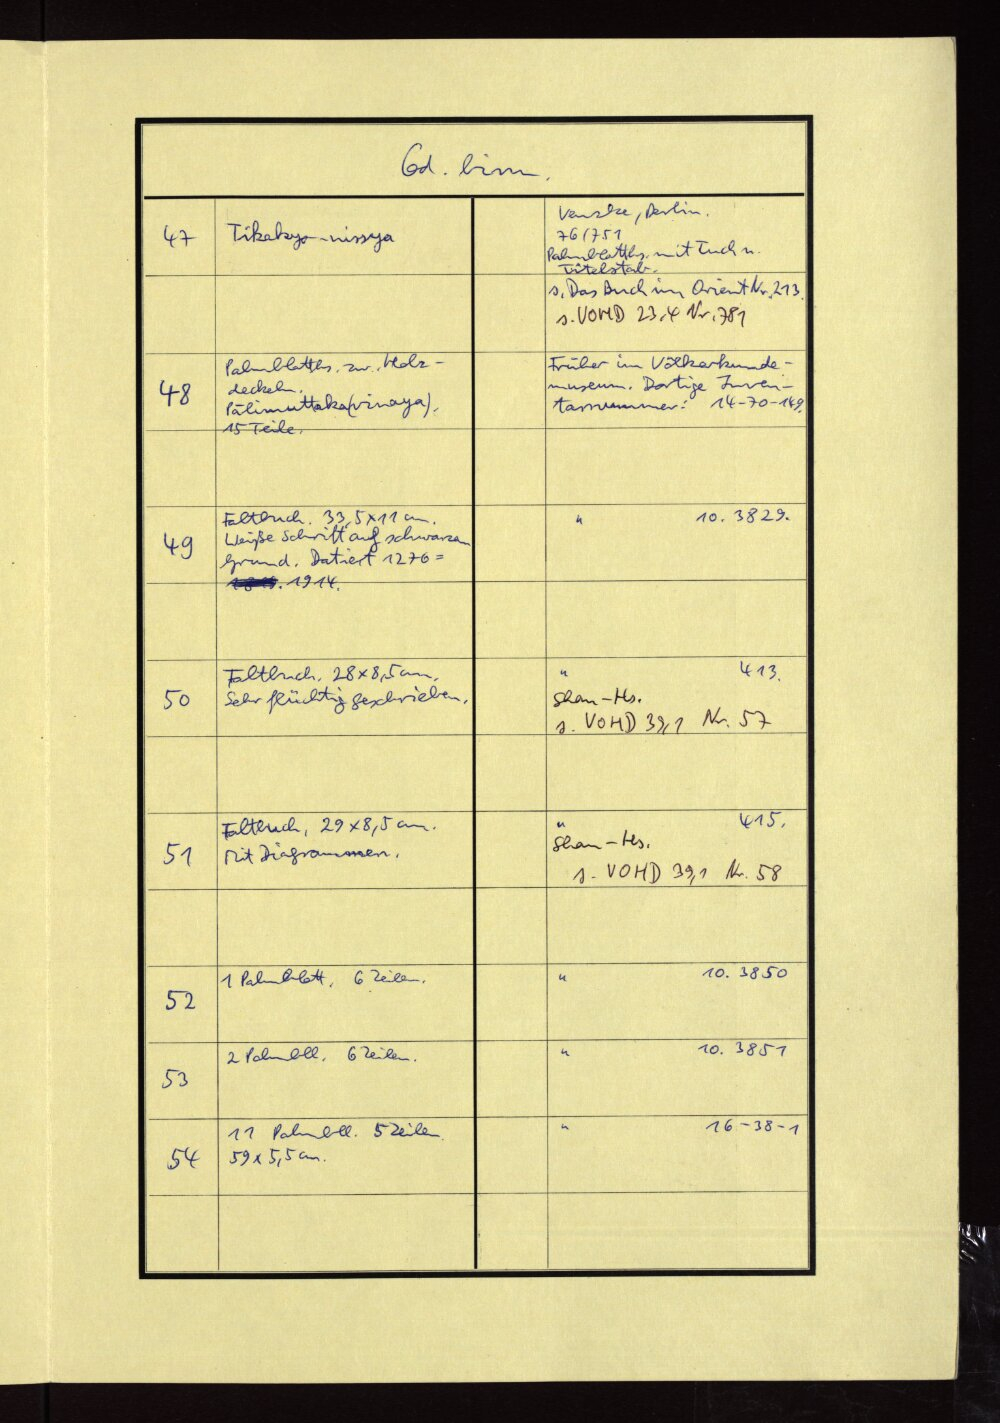 Cod. birm.
47 Tikakyo-nissya
Venzke, Berlin.
76/751
Palmblatths. mit Tuch u.
Titelstab.
s. Das Buch im Orient Nr. 213.
s. VOHD 23,4 Nr. 781
48 Palmblatths. zw. Holz-
deckeln.
Pālimuttaka(vinaya).
15 Teile.
Früher im Völkerkunde-
museum. Dortige Inven-
tarnummer: 14-70-149.
49 Faltbuch. 33,5x11 cm.
Weiße Schrift auf schwarzem
Grund. Datiert 1276 =
1914.
" 10. 3829.
50 Faltbuch. 28x8,5 cm.
Sehr flüchtig geschrieben.
" 413.
Shan-Hs.
s. VOHD 39,1 Nr. 57
51 Faltbuch, 29x8,5 cm.
Mit Diagrammen.
" 415.
Shan-Hs.
s. VOHD 39,1 Nr. 58
52 1 Palmblatt. 6 Zeilen.
" 10. 3850
53 2 Palmbll. 6 Zeilen.
" 10. 3851
54 11 Palmbll. 5 Zeilen.
59x5,5 cm.
" 16-38-1